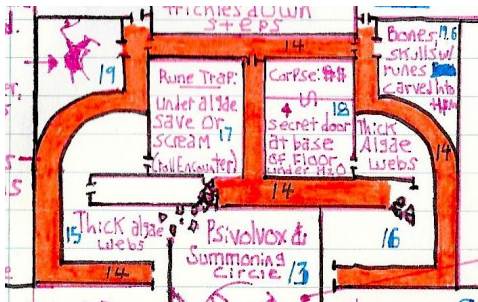 trickles down
steps
14
Bones, 19.6
skulls w/
runes
carved into
them
19
Rune Trap:
under algae
save or
scream 17
(roll Encounter)
Corpse:
S
18
secret door
at base
of Floor
under H2O
Thick
Algae
webs
14
14
15 Thick algae
webs
16
Psivolvox &
Summoning
Circle 13
14
14